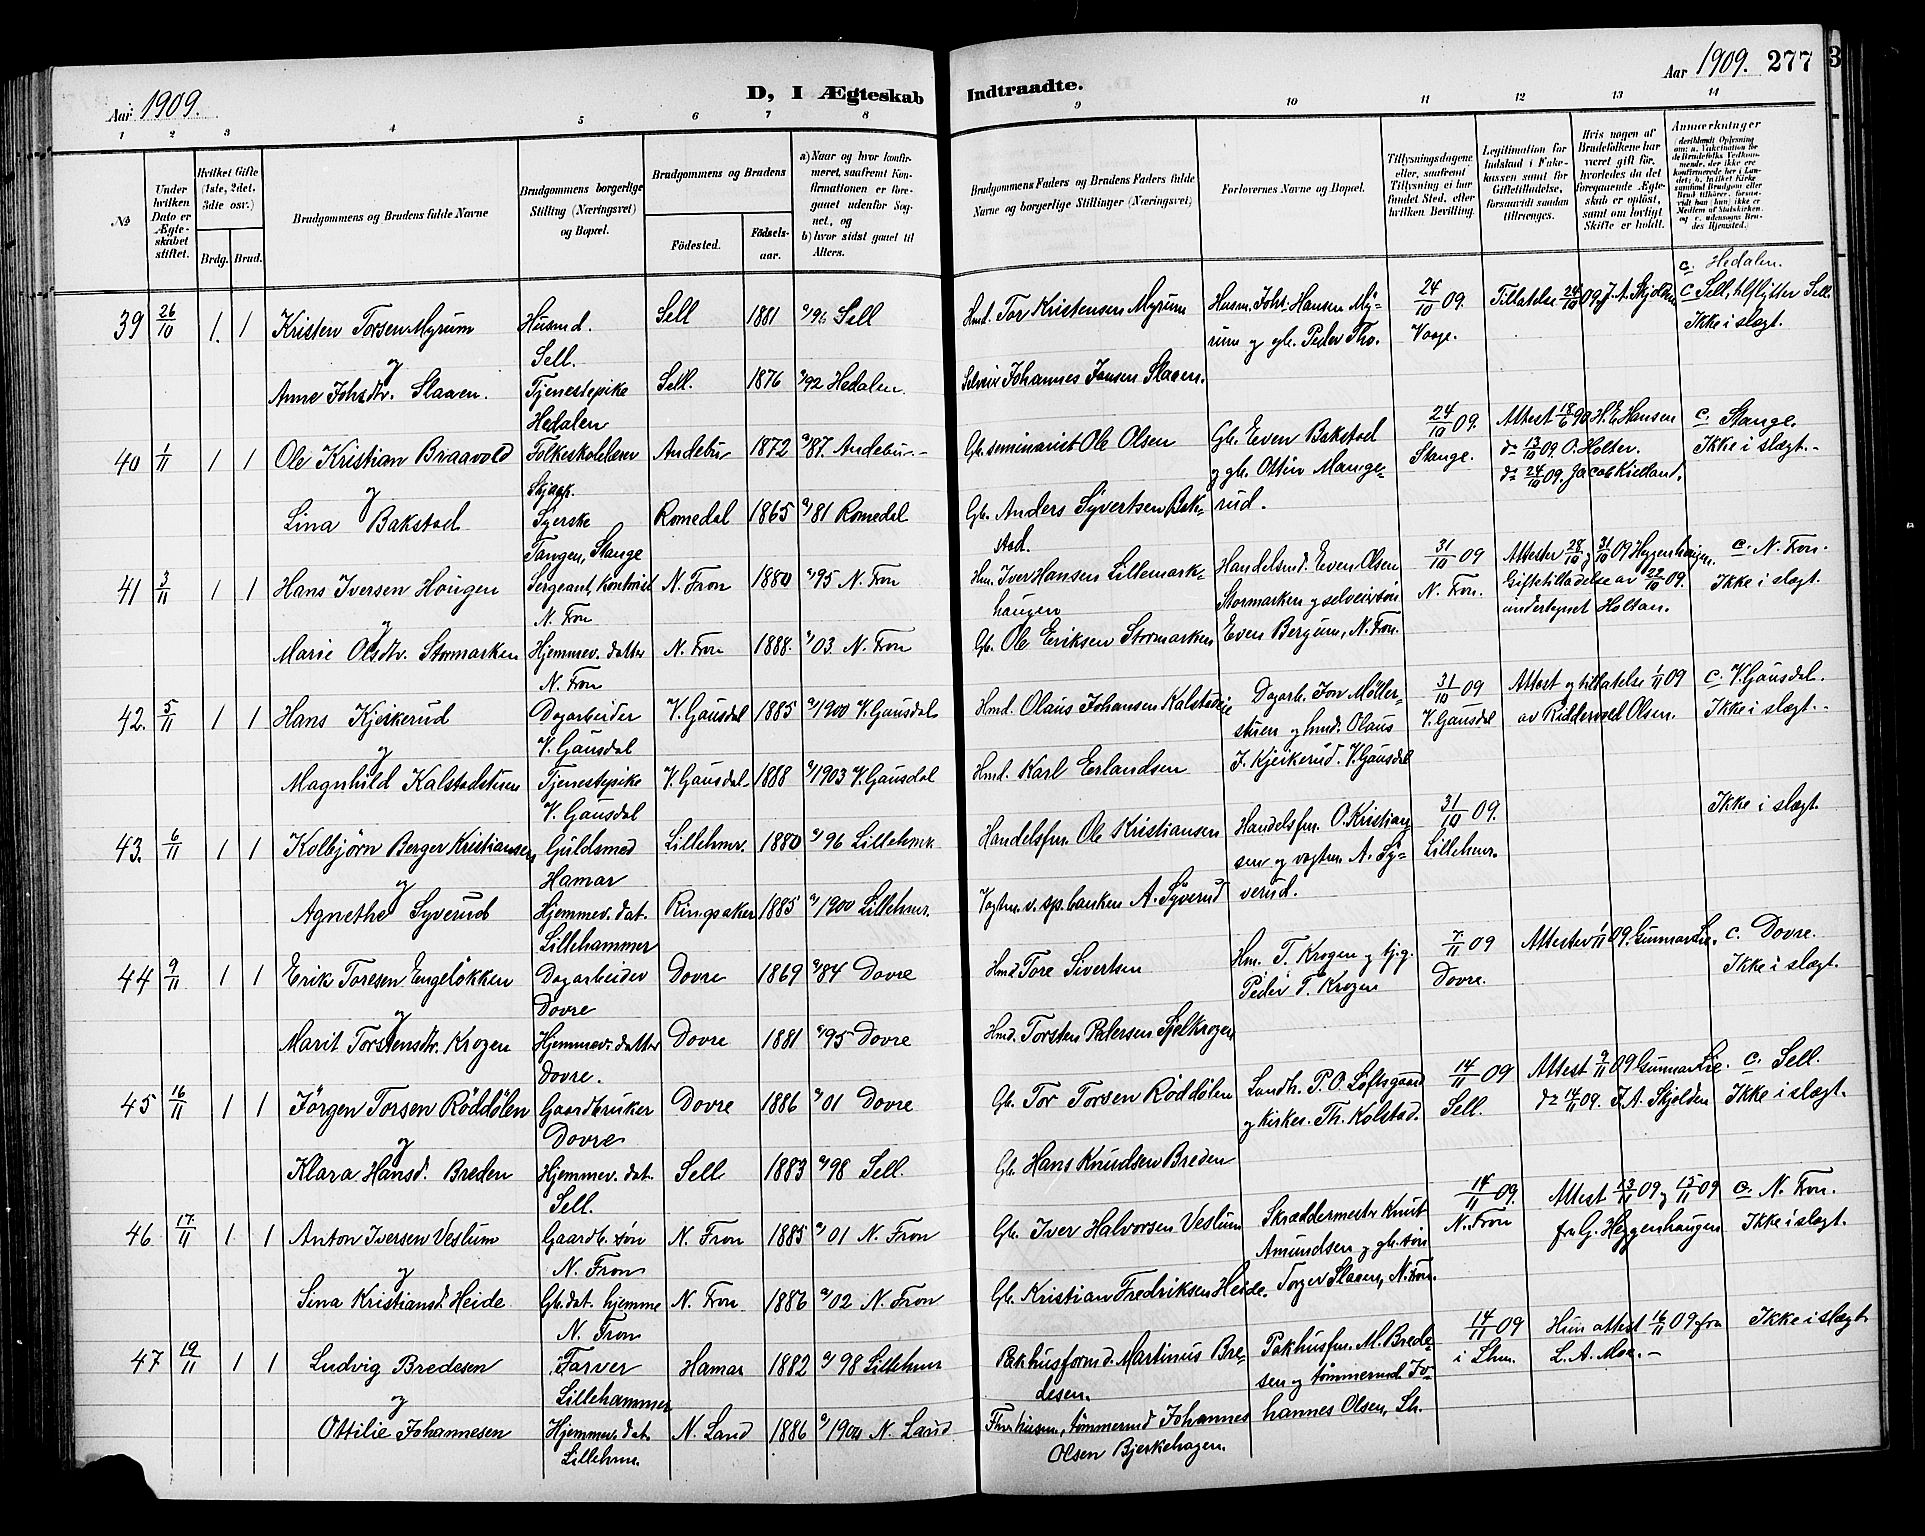 Aar 1909.
D, I Ægteskab
Indtraadte.
Aar 1909. 277
1 2 3 4 5 6 7 8 9 10 11 12 13 14
№
Under hvilken Dato er Ægteskabet stiftet.
Hvilket Gifte (1ste, 2det, 3die osv.)
Brdg. Brud.
Brudgommens og Brudens fulde Navne
Brudgommens borgerlige Stilling (Næringsvei) og Bopæl.
Brudgommens og Brudens
Fødested.
Fødselsaar.
a) Naar og hvor konfirmeret, saafremt Konfirmationen er foregaaet udenfor Sognet, og
b) hvor sidst gaaet til Alters.
Brudgommens Faders og Brudens Faders fulde Navne og borgerlige Stillinger (Næringsvei)
Forlovernes Navne og Bopæl.
Tillysningsdagene eller, saafremt Tillysning ei har fundet Sted, efter hvilken Bevilling.
Legitimation for Indskud i Enkekassen samt for Giftetilladelse, forsaavidt saadan tiltrænges.
Hvis nogen af Brudefolkene har været gift før, hvorledes da det foregaaende Ægteskab er opløst, samt om lovligt Skifte er holdt.
Anmærkninger
39 26/10 1. 1 Kristen Torsen Myrum Husmd. Sell 1881 96 Sell Hmd. Tor Kristensen Myrum Husm. Johs. Hansen My- 24/10 09. Tillatelse 24/10 09, J. A. Skjolden c. Hedalen.
og Sell. rum og gb. Peder Tho. Vaage. c. Sell, tilflytter Sell.
Ikke i slægt.
Anne Johsdtr. Slaaen. Tjenestepike Sell. 1876 92 Hedalen. Selveier Johannes Jonsen Slaaen.
Hedalen
40 1/11 1 1 Ole Kristian Braavold Folkeskolelærer Andebu 1872 87. Andebu.- Gb. seminarist Ole Olsen Gb. Even Bakstad 24/10 09. Attest 18/6 90 H. E. Hansen c. Stange.
og Skjaak. og gb. Ottin Mange- Stange. do 13/10 09. O. Holter. Ikke i slægt.-
do 24/10 09. Jacob Kielland.
Lina Bakstad Syerske Romedal 1865 81 Romedal Gb. Anders Syvertsen Bak- rud.
Tangen, Stange stad.
41 3/11 1 1 Hans Iversen Haugen Sergeant, kontorist N. Fron 1880 95 N. Fron Hm. Iver Hansen Lillemark- Handelsmd. Even Olsen 31/10 09 Attester 28/10 og 31/10 09 Heggenhaugen. c. N. Fron.
og N. Fron haugen Stormarken og selveiersøn N. Fron. Giftetilladelse av 22/10 09. Ikke i slægt.
Marie Olsdtr. Stormarken Hjemmev. datter N. Fron 1888. 03. N. Fron Gb. Ole Eriksen Stormarken Even Bergum, N. Fron. undertegnet Holtan.
N. Fron
42. 5/11 1 1 Hans Kjeikerud Dagarbeider V. Gausdal 1885 1900 V. Gausdal Hmd. Olaus Johansen Kalstadeie Dagarb. Jon Møller- 31/10 09 Attest og tillatelse 1/11 09 c V. Gausdal.
og V. Gausdal stuen og hmd. Olaus V. Gausdal av Riddervold Olsen. Ikke i slægt.-
Magnhild Kalstadstuen Tjenestepike V. Gausdal. 1888 1903 V. Gausdal Hmd. Karl Erlandsen J. Kjeikerud. V. Gausdal
V. Gausdal
43. 6/11 1 1 Kolbjörn Berger Kristiansen Guldsmed Lillehmr. 1880 96 Lillehmr. Handelsfm. Ole Kristiansen Handelsfm. O. Kristian- 31/10 09. Ikke i slægt.
og Hamar sen og vogtm. A. Sy- Lillehmr.
Agnethe Syverud Hjemmev. dat. Ringsaker 1885 1900 Lillehmr. Vogtm. v. sp.banken A. Syverud verud.
Lillehammer
44 9/11 1 1 Erik Toresen Engeløkken Dagarbeider Dovre 1869 84 Dovre Hmd Tore Sivertsen Hm. T. Krogen og tj.g. 7/11 09 Attester 1/11 09. Gunnar Lie. c. Dovre.
og Dovre Peder T. Krogen Dovre. Ikke i slægt.
Marit Torstensdtr. Krogen Hjemmev. datter Dovre 1881 95 Dovre Hmd. Torsten Pedersen Sjelkrogen
Dovre.
45 16/11 1 1 Jörgen Torsen Röddölen Gaardbruker Dovre 1886 01 Dovre Gb. Tor Torsen Röddölen Landh. P. O. Loftsgaard 14/11 09 Attest 9/11 09 Gunnar Lie. c. Sell.
og Dovre og kirkes. Th. Kolstad. Sell. do 14/11 09. J. A. Skjolden Ikke i slægt.
Klara Hansd. Breden Hjemmev. dat. Sell 1883 98 Sell. Gb. Hans Knudsen Breden
Sell.
46 17/11 1 1 Anton Iversen Veslum Gaardb. søn N. Fron 1885 01 N. Fron Gb. Iver Halvorsen Veslum Skræddermestr Knut 14/11 09. Attest 13/11 09 og 15/11 09 c. N. Fron.
og N. Fron Amundsen og gb. søn N. Fron fr. G. Heggenhaugen Ikke i slægt.
Sina Kristiansd. Heide Gb. dat. hjemme N. Fron 1886 02 N. Fron Gb. Kristian Fredriksen Heide. Torger Slaaen, N. Fron.
N. Fron
47 19/11 1 1 Ludvig Bredesen Farver Hamar 1882 98 Lillehmr Pakhusformd. Martinus Bre- Pakhusfm. M. Brede- 14/11 09 Hun attest 16/11 09 fra Ikke i slægt
og Lillehammer desen. sen og tømmermd. Jo- i Lhm. L. A. Moe.-
Ottilie Johannesen Hjemmev. dat. N. Land 1886 1900 N. Land tømmermd Johannes hannes Olsen, Lh.
Lillehmr. Olsen Bjerkehagen.